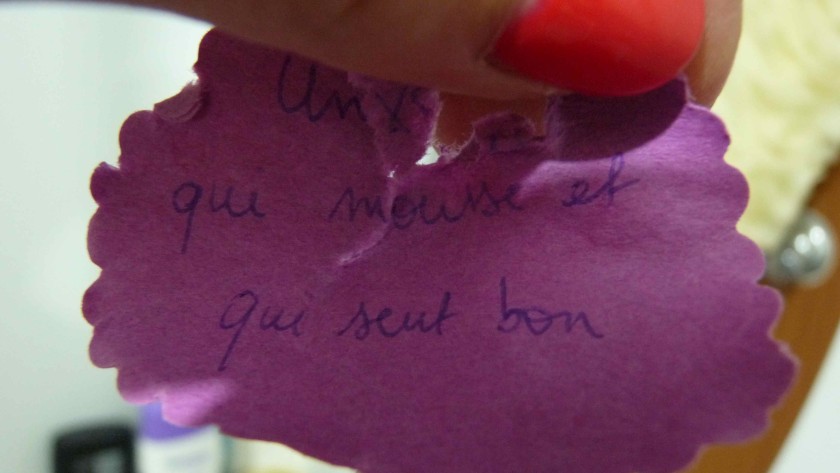 Un
que mousse et
que sent bon